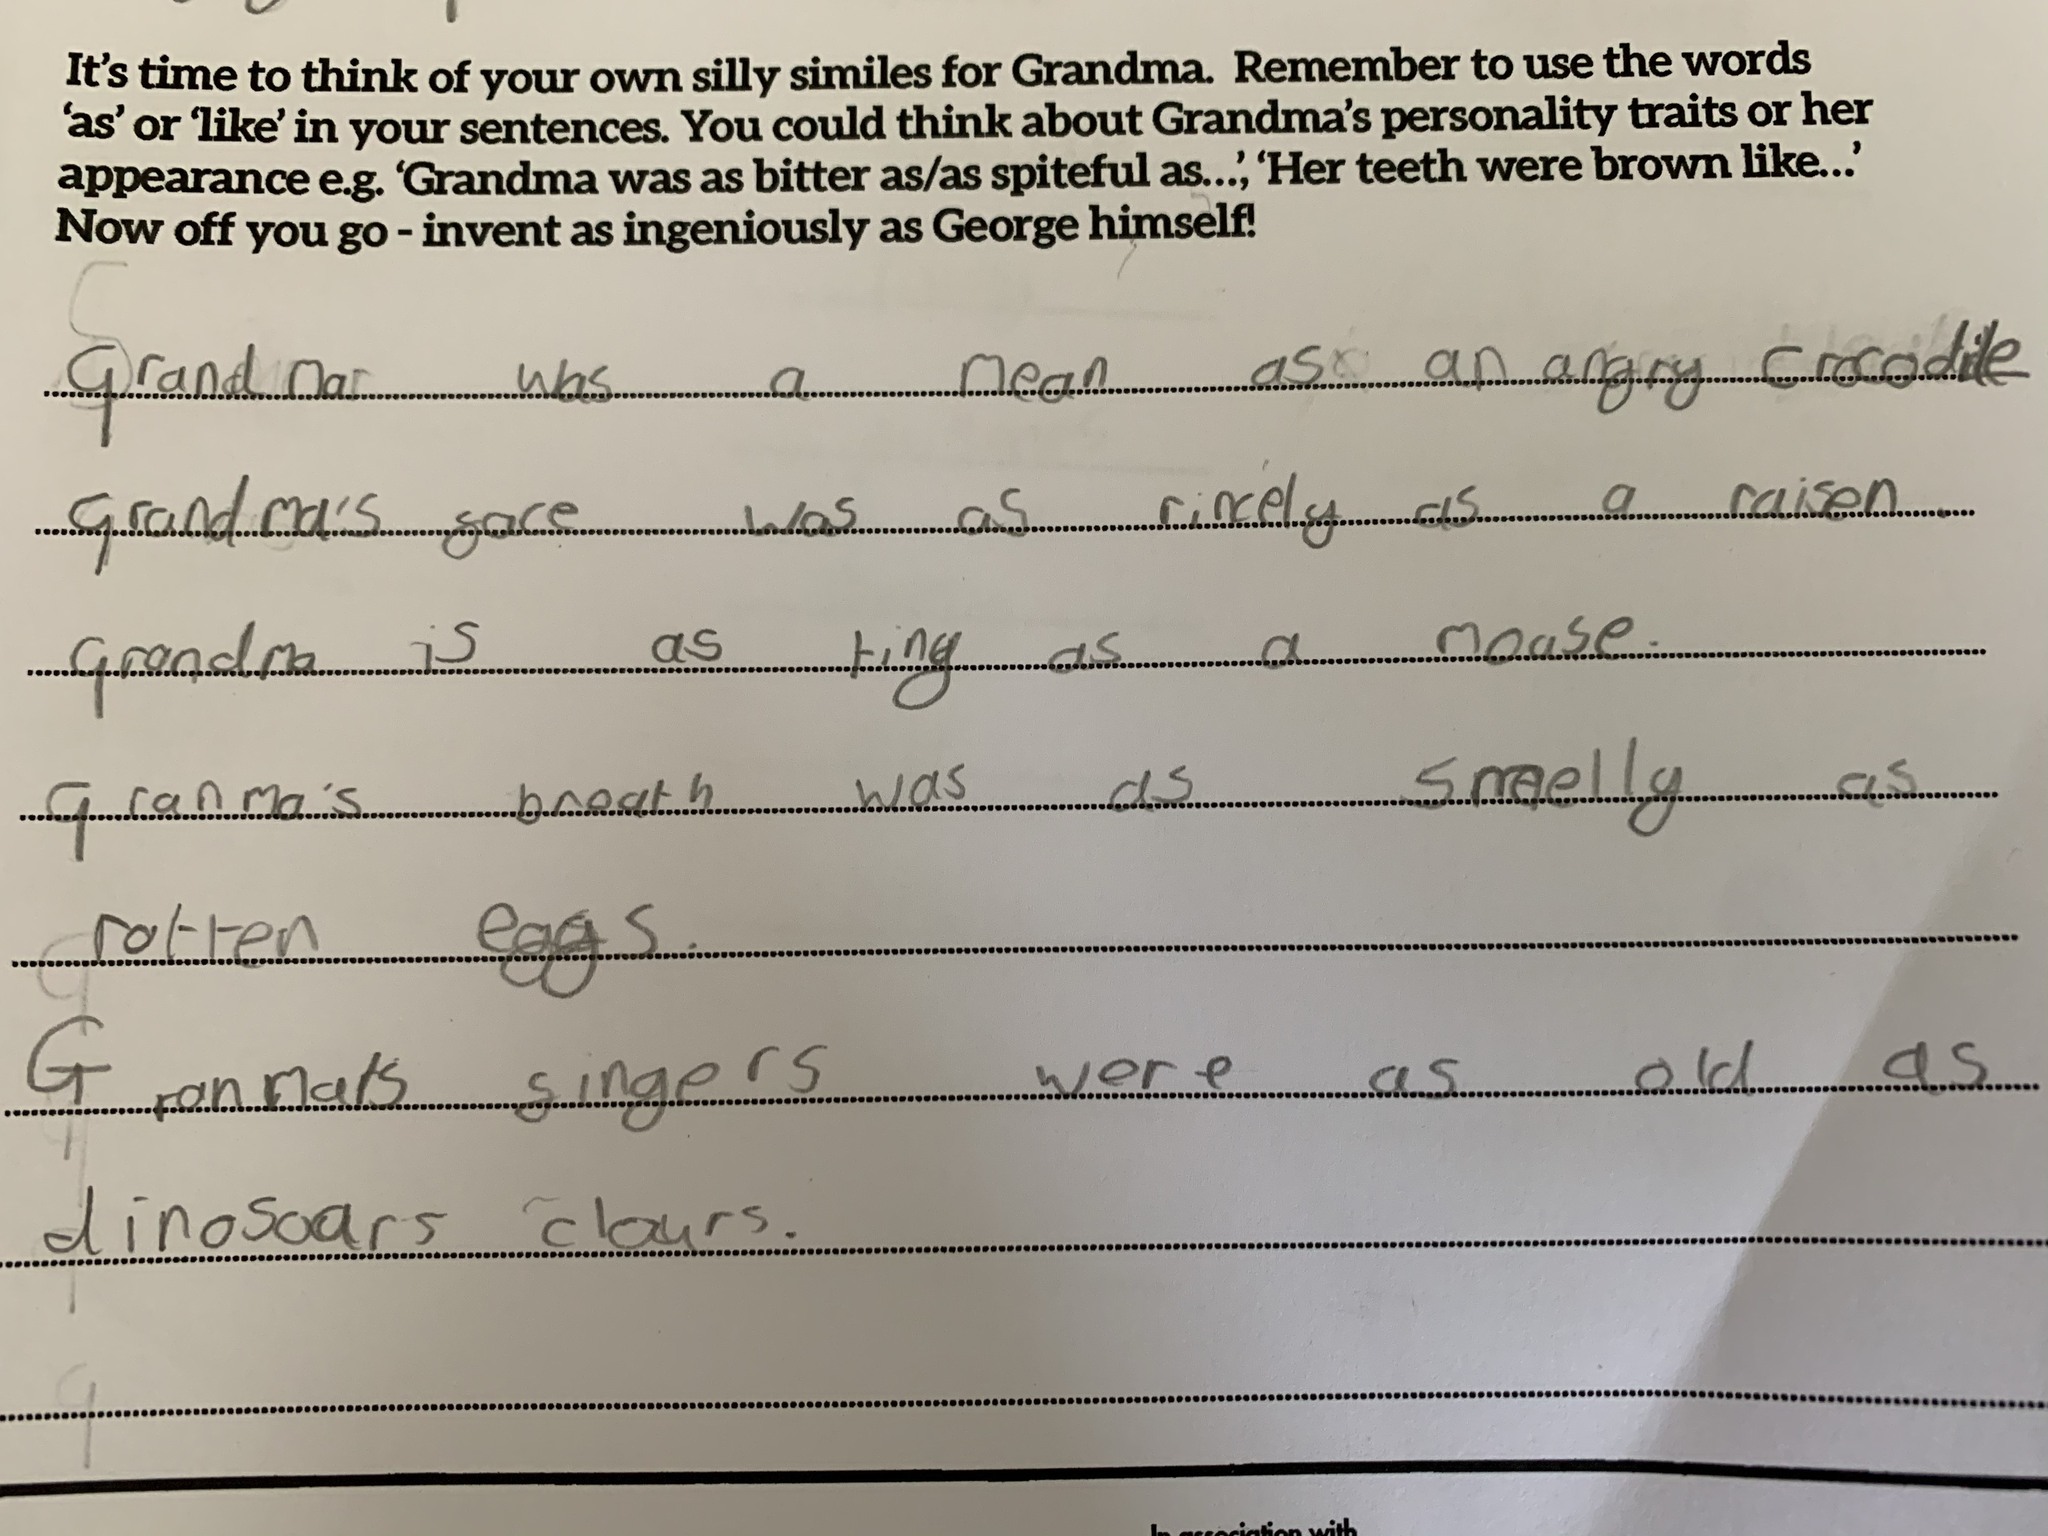 It's time to think of your own silly similes for Grandma. Remember to use the words
'as' or 'like' in your sentences. You could think about Grandma's personality traits or her
appearance e.g. 'Grandma was as bitter as/as spiteful as...', 'Her teeth were brown like...'
Now off you go - invent as ingeniously as George himself!
Grandmar was a mean as an angry crocodile
Grandma's face was as rincely as a raisen.
Grandma is as tiny as a mouse.
Granma's breath was as smelly as
rotten eggs.
Granma's fingers were as old as
dinosoars clours.
In association with